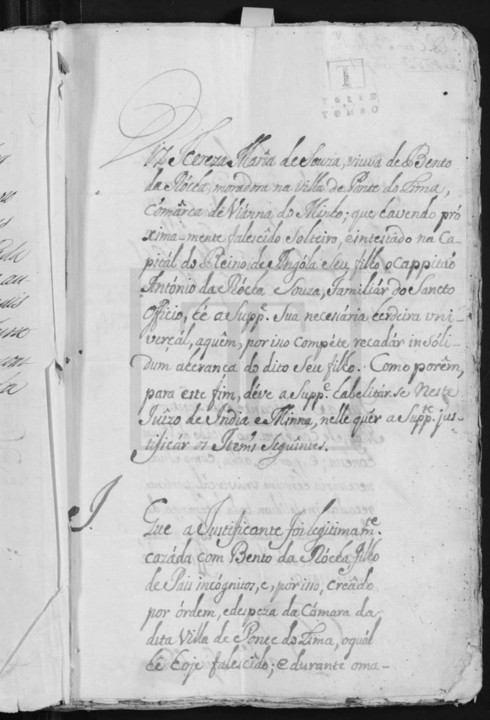 T
TORRE
DO
TOMBO
Diz Tereza Maria de Souza, viuva de Bento
da Rócha, moradora na Villa de Ponte do Lima,
Comárca de Viánna do Minho; que havendo pró
ximamente falescido solteiro, e intestado na Ca-
pitál do Reino de Angóla seu filho o Cappitaõ
António da Rócha e Souza, Familiár do Sancto
Officio, hé a Supp.e Sua necessária herdeira uni-
verçál, aquêm, por isso compéte recadár in Sóli-
dum a herança do dito Seu filho. Como porêm,
para este fim, déve a Supp.e habelitár-se neste
Juízo de India e Minna, nelle quér a Supp.e jus-
tificár os Items Seguintes.
1.
Que a Justificante foi legitimam.te
cazáda com Bento da Rócha filho
de Pais incógnitos, e, por isso, creádo
por órdem, e despeza da Cámara da
dita Villa de Ponte do Lima, o quál
hé hoje falescido; e durante o ma-